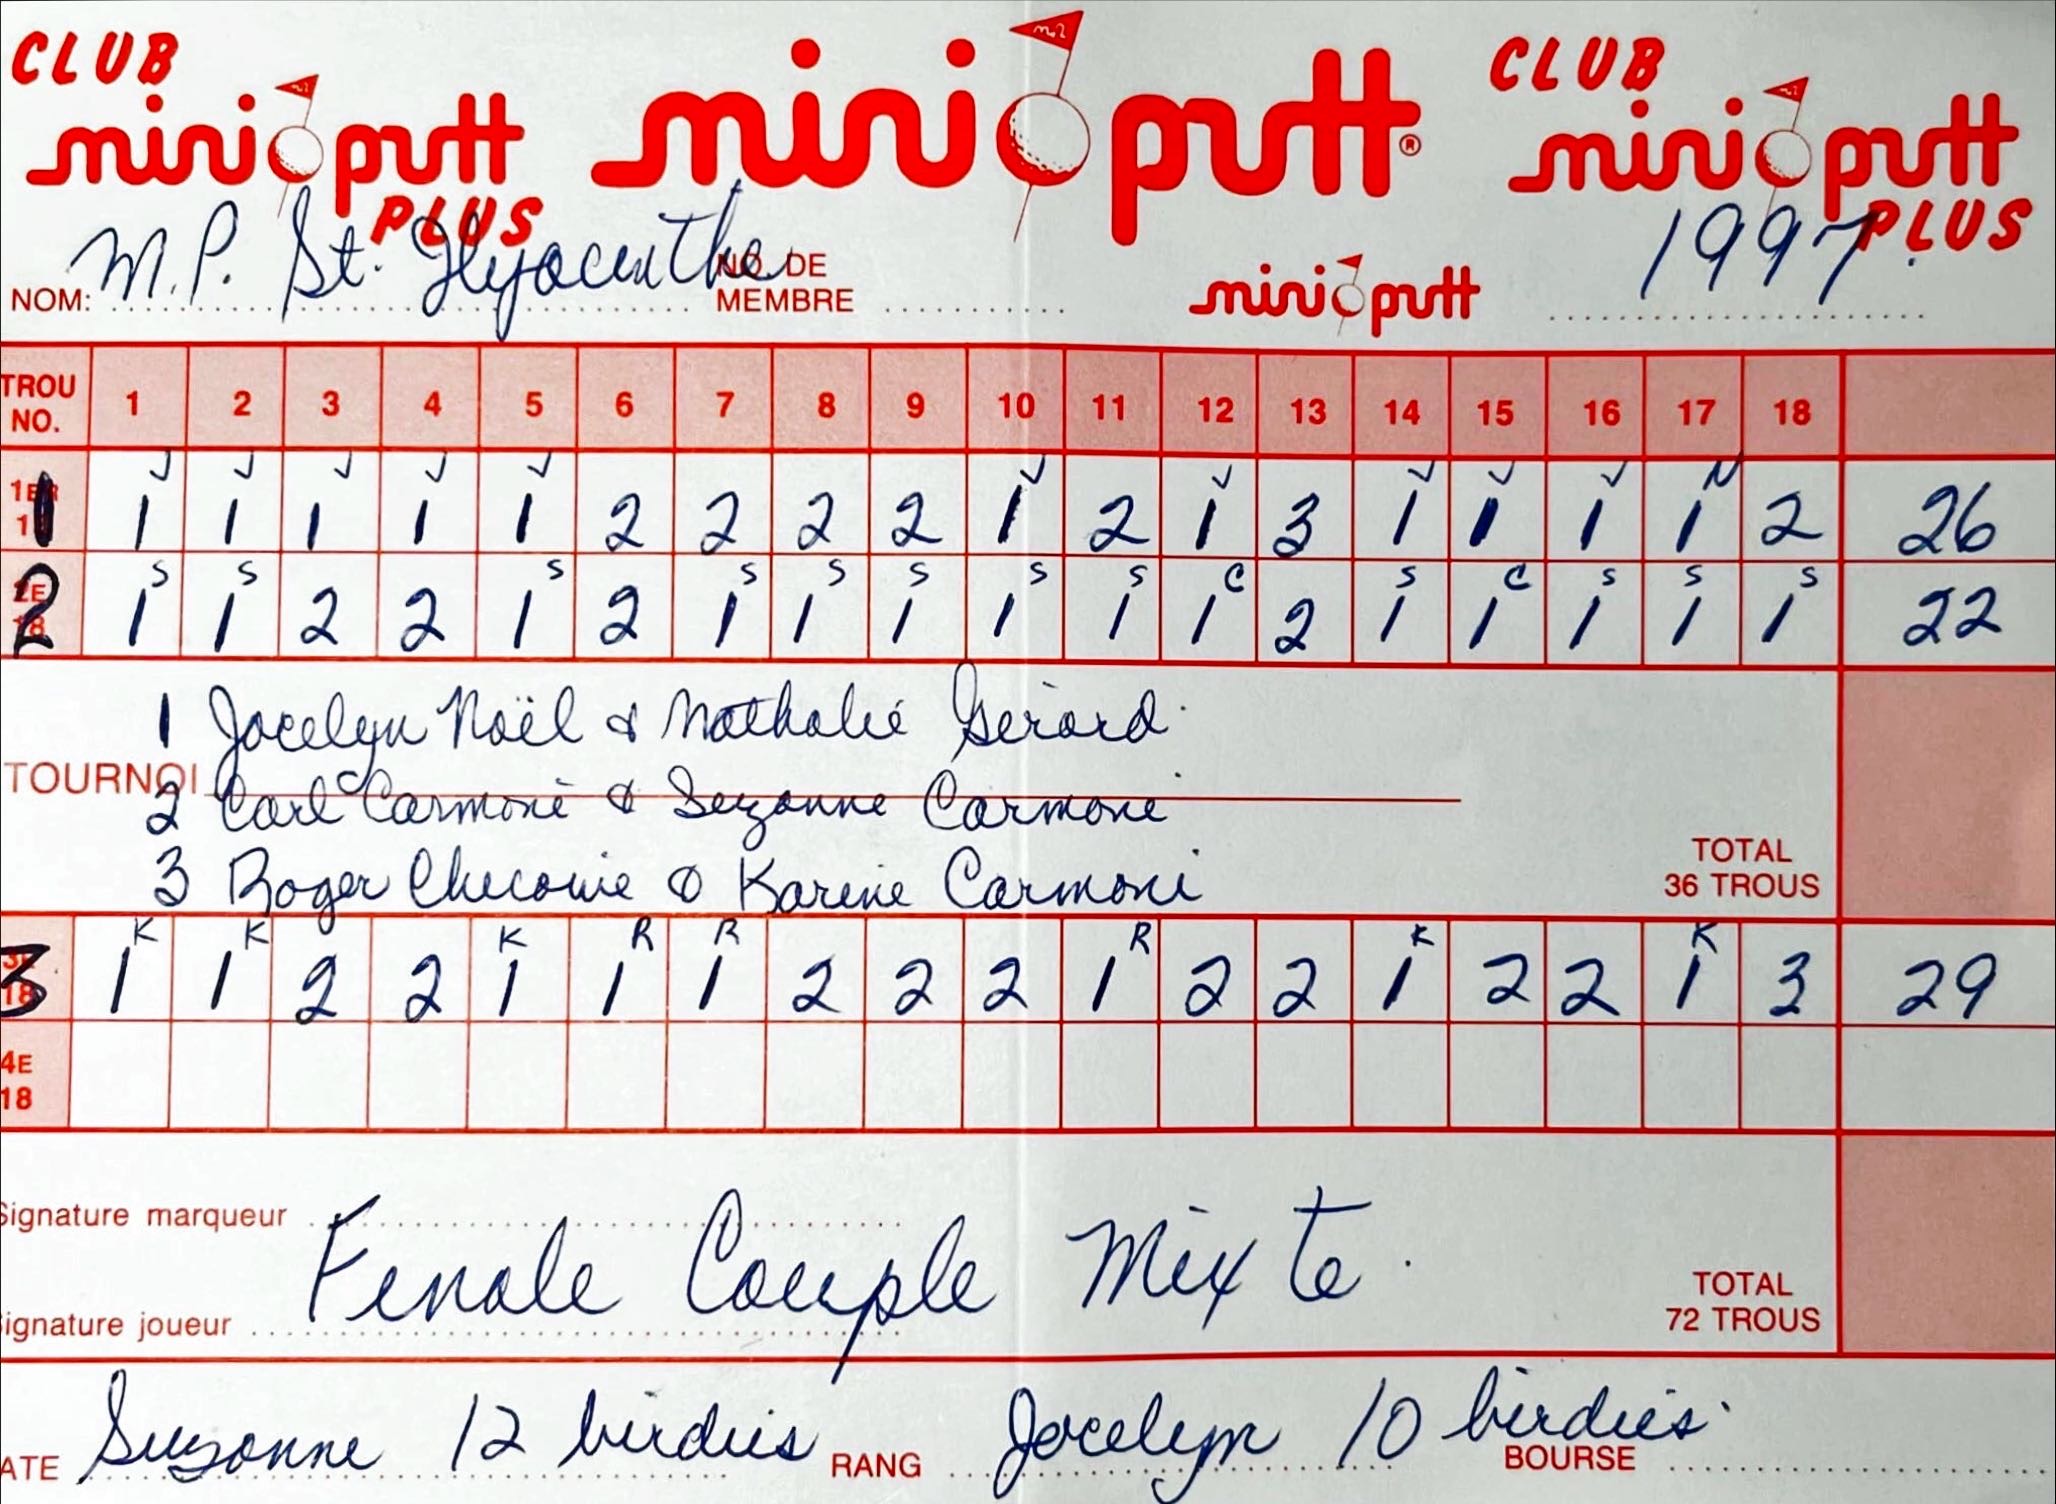 CLUB mini putt PLUS
mini putt®
CLUB mini putt PLUS
NOM: M.P. St. Hyacinthe NO. DE MEMBRE mini putt 1997
TROU NO. 1 2 3 4 5 6 7 8 9 10 11 12 13 14 15 16 17 18
J J J J J J J J J J N
1 1 1 1 1 1 2 2 2 2 1 2 1 3 1 1 1 1 2 26
S S S S S S S S C S C S S S
2 1 1 2 2 1 2 1 1 1 1 1 1 2 1 1 1 1 1 22
1 Jocelyn Noël & Nathalie Gerard
TOURNOI
2 Carl Carmoni & Suzanne Carmoni
3 Roger Checowie & Karine Carmoni
TOTAL 36 TROUS
K K K R R R K K
3 1 1 2 2 1 1 1 2 2 2 1 2 2 1 2 2 1 3 29
4E 18
Signature marqueur
Finale Couple Mixte.
ignature joueur
TOTAL 72 TROUS
ATE Suzanne 12 birdies RANG Jocelyn 10 birdies. BOURSE